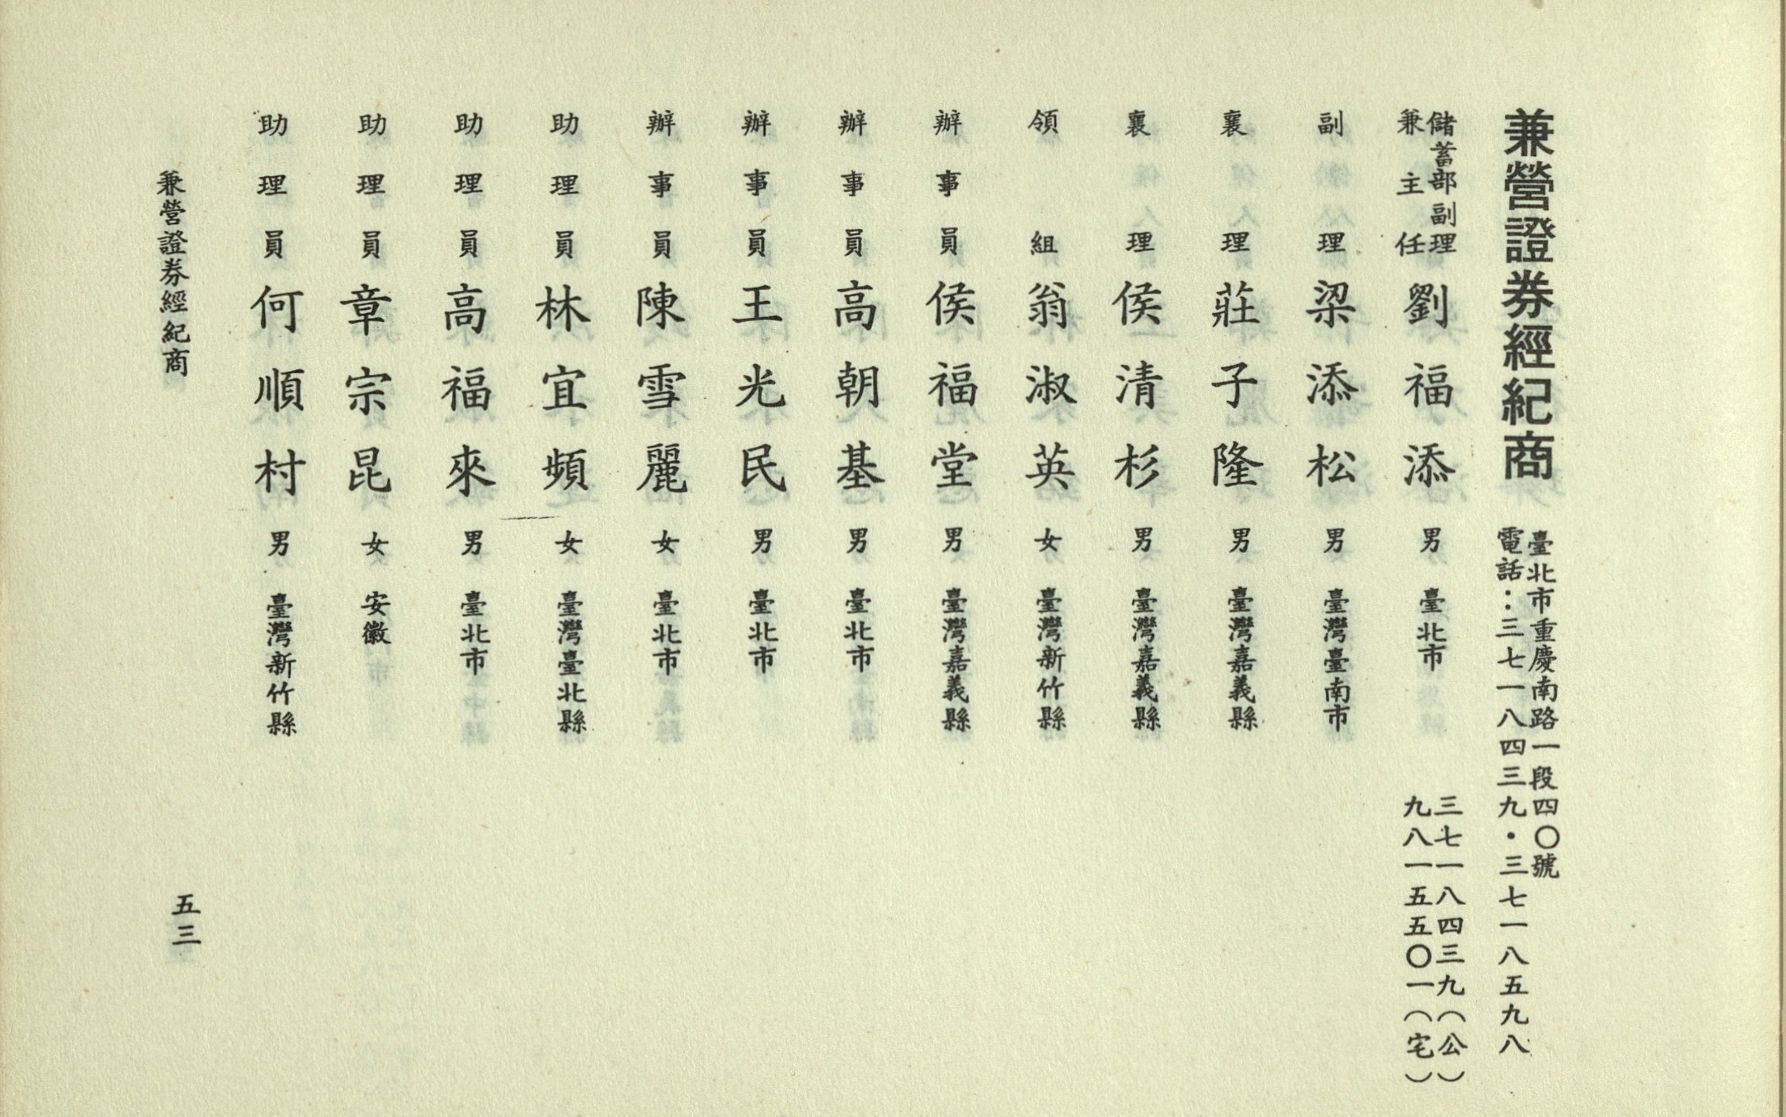 兼營證券經紀商
臺北市重慶南路一段四〇號
電話：三七一八四三九・三七一八五九八
儲蓄部副理
兼主任
劉福添
男
臺北市
三七一八四三九（公）
九八一五五〇一（宅）
副理 梁添松 男 臺灣臺南市
襄理 莊子隆 男 臺灣嘉義縣
襄理 侯清杉 男 臺灣嘉義縣
領組 翁淑英 女 臺灣新竹縣
辦事員 侯福堂 男 臺灣嘉義縣
辦事員 高朝基 男 臺北市
辦事員 王光民 男 臺北市
辦事員 陳雪麗 女 臺北市
助理員 林宜頻 女 臺灣臺北縣
助理員 高福來 男 臺北市
助理員 章宗昆 女 安徽
助理員 何順村 男 臺灣新竹縣
兼營證券經紀商
五三